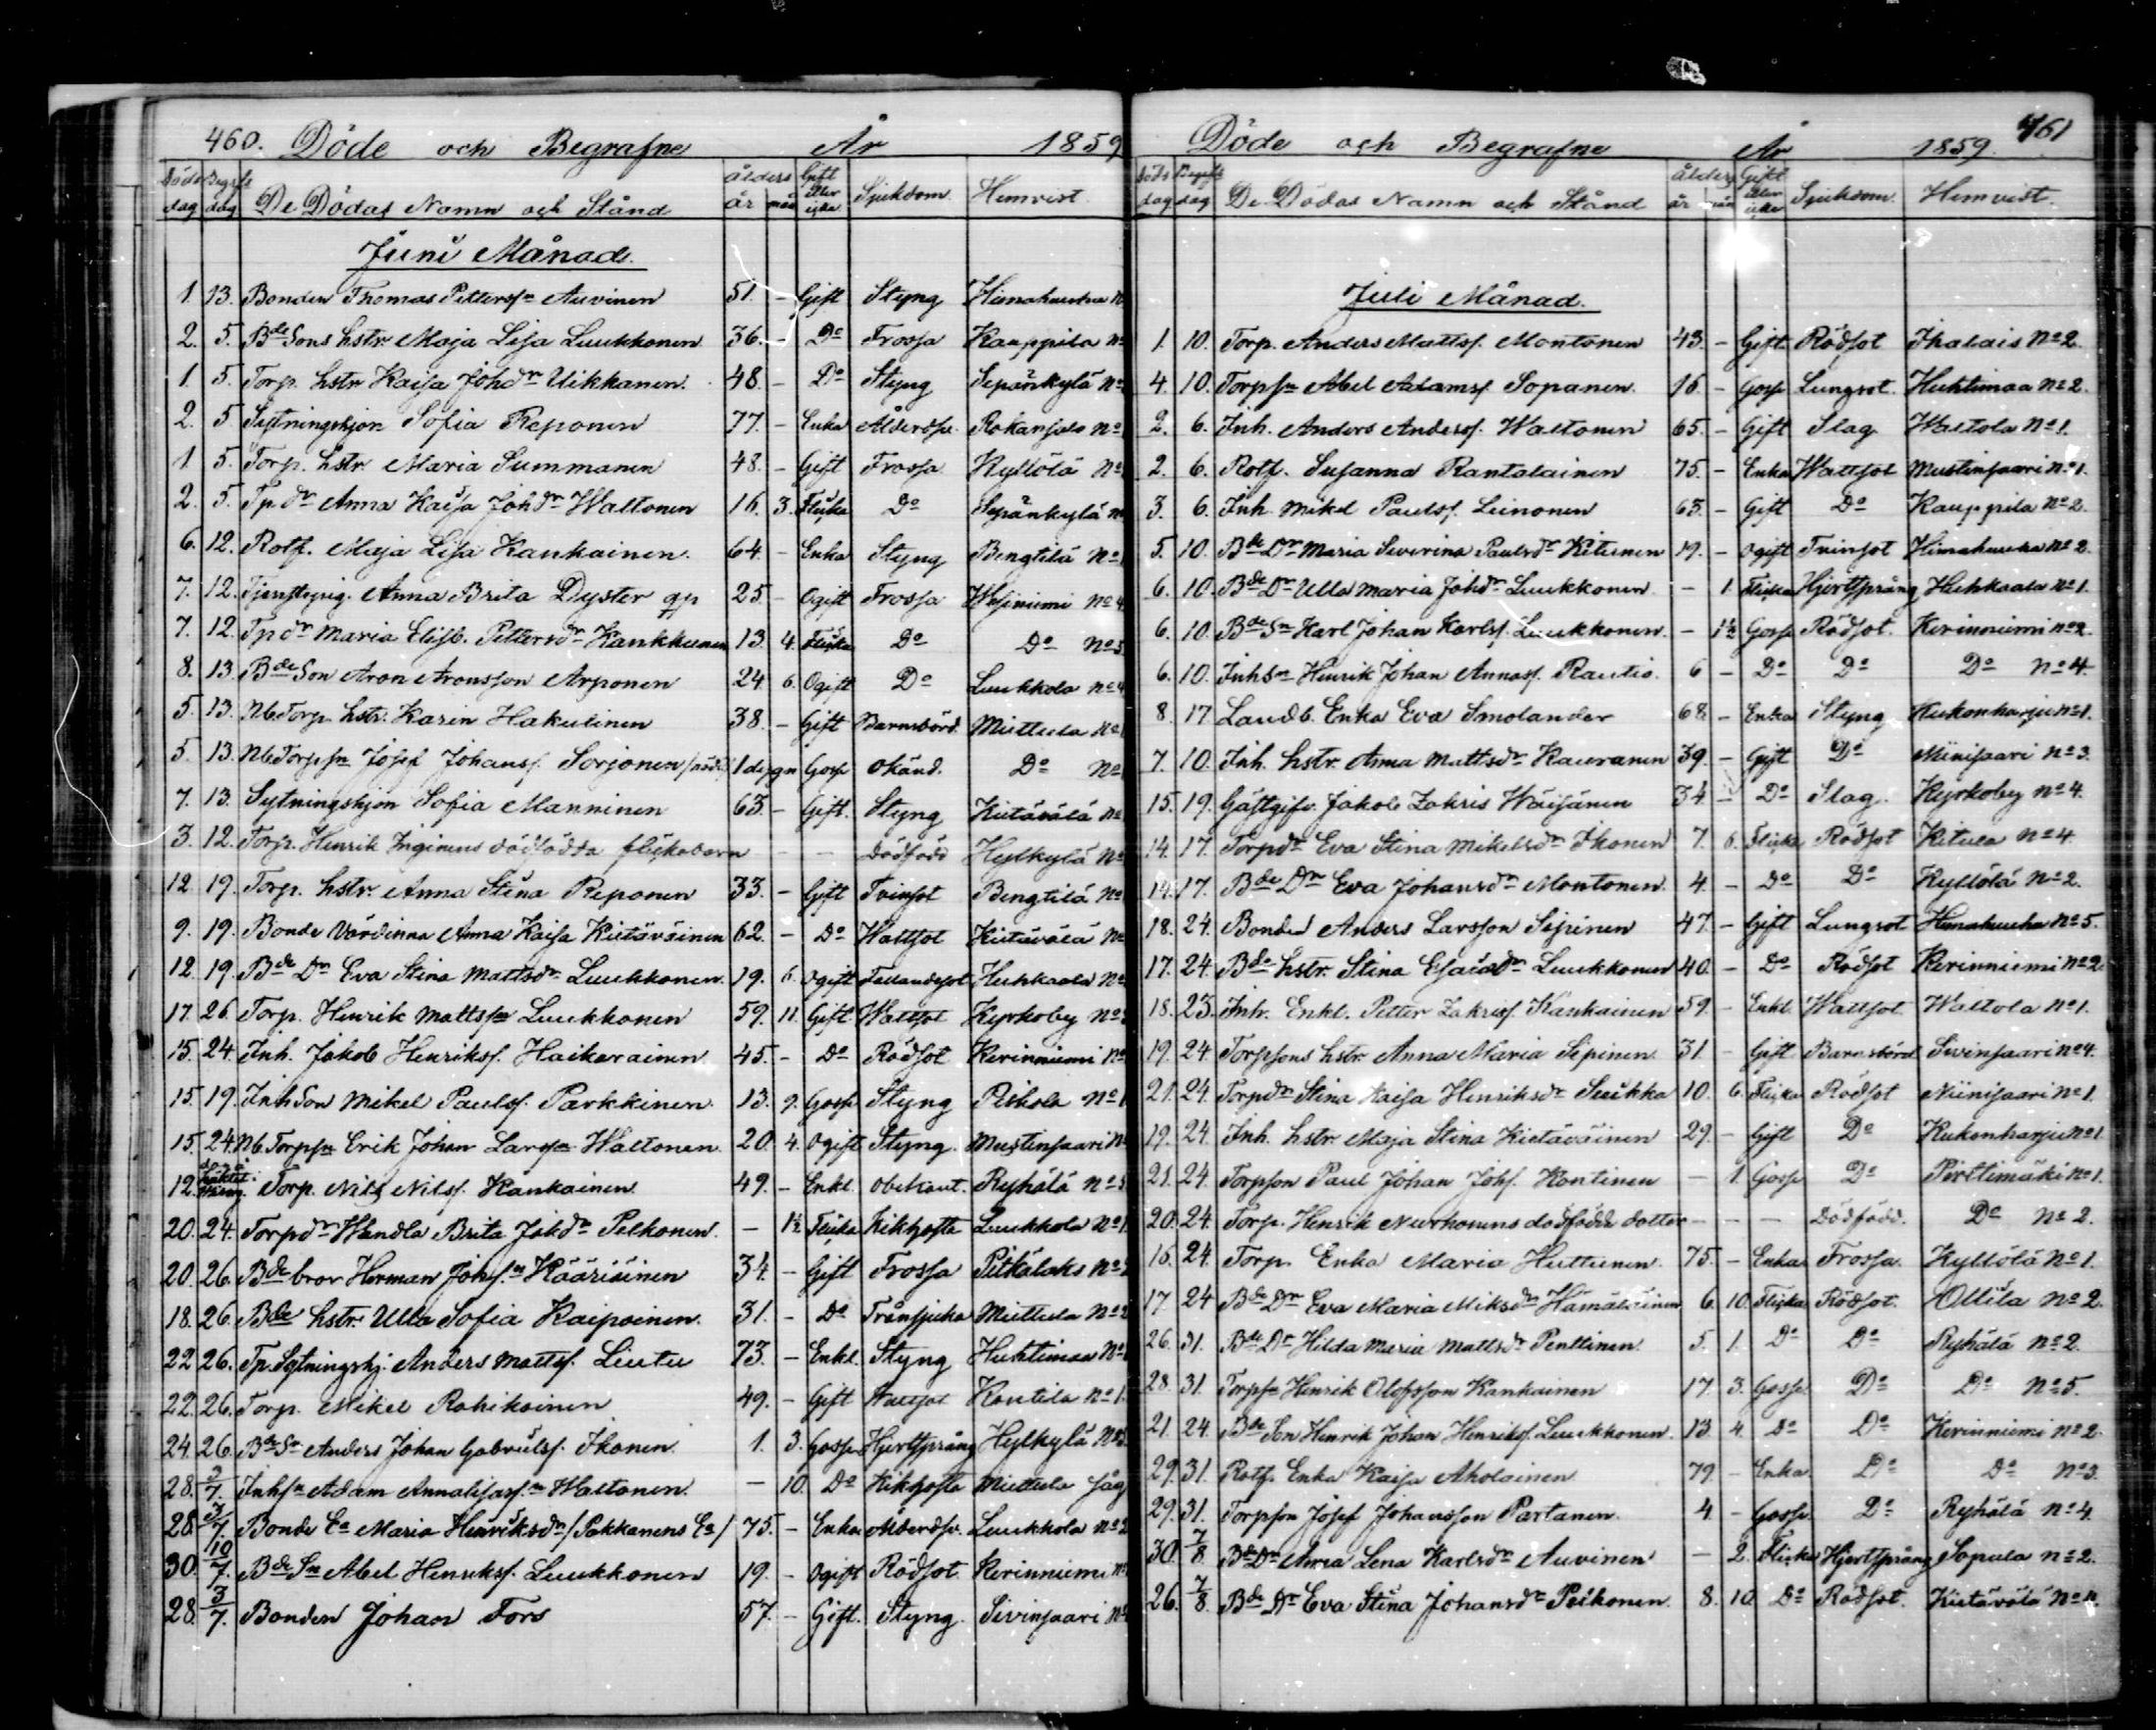 460. Döde och Begrafne År 1859
Döds dag Begrfs dag De Dödas Namn och Stånd ålders år mån Gift eller icke Sjukdom Hemvist
Juni Månad.
1. 13. Bonden Thomas Pettersson Auvinen 51. - Gift Styng Himahuuha N
2. 5. Bde Sons hstr. Maja Lisa Luukkonen 36. - Do Frossa Kauppila No
1. 5. Torp. hstr Kaisa Johdr Uikkanen. 48. - Do Styng Sepänkylä No
2. 5 Sytningshjon Sofia Reponen 77. - Enka Ålderdsv. Rokansalo No
1 5. Torp. hstr Maria Summanen 48. - Gift Frossa Kyllölä No
2. 5. Tp. dr Anna Kaisa Johdr Waltonen 16. 3. Flicka Do Sepänkylä No
6. 12. Rotf. Maja Lisa Kankainen. 64. - Enka Styng Bengtilä No
7. 12. Tjenstepig. Anna Brita Dyster qp 25 - Ogift Frossa No 4
7. 12. Tp dr Maria Elisb. Pettersdr Kankkunen 13 4. Flicka Do Do No 3
8. 13. Bde Son Aron Aronsson Arponen 24 6. Ogift Do Luukkola No 4
5. 13. Nb Torp hstr. Karin Hakulinen 38. - Gift Barnsbörd Miettula No
5 13. Nb Torpsn Josef Johanss. Sorjonen 1 dygn Goss okänd. Do No
7. 13. Sytningshjon Sofia Manninen 63. - Gift. Styng Kietävälä No
3. 12. Torp. Henrik Inginens dödfödda flickebarn - - dödfödd Hylkylä No
12. 19. Torp. hstr. Anna Stina Reponen 33. - Gift Tvinsot Bengtilä No
9. 19. Bonde Värdinna Anna Kaisa Kietäväinen 62. - Do Wattsot Kietävälä No
12. 19. Bde Dr Eva Stina Mattsdr Luukkonen. 19. 6. Ogift Fallandesot Huhkaala No
17. 26. Torp. Henrik Mattssn Luukkonen 59. 11. Gift Wattsot Kyrkoby No
15. 24. Inh. Jakob Henrikss. Haikarainen 45. - Do Rödsot Kerinniemi No
15. 19. Inh Son Mikel Paulss. Parkkinen. 13. 9. Goss Styng Riskola No 1
15. 24. Nb Torpsn Erik Johan Larssn Waltonen 20. 4. Ogift Styng. Mustinsaari No
12. Torp. Nils Nilss. Kankainen 49. - Enkl. obekant. Ryhälä No 5
20. 24. Torpdr Wendla Brita Jakdr Pelkonen. - 1½ Flicka Kikhosta Luukkola No 1.
20. 26. Bde bror Herman Johssn Kääriäinen 34. - Gift Frossa Pitkälaks No
18. 26. Bde hstr. Ulla Sofia Kaipainen. 31. - Do Trånsjuka Miettula No 2
22 26. Tp. Sytningshj. Anders Mattss. Liutu 73. - Enkl. Styng Huhtimaa No
22. 26. Torp. Mikel Rahikainen 49. - Gift Wattsot Kontila No 1.
24. 26. Bde Sn Anders Johan Gabrielss. Ikonen 1. 3. Goss Hjertsprång Hylkylä No
28. 3/7. Inhsn Adam Annalisassn Waltonen. - 10. Do Kikhosta Miettula såg
28. 3/7. Bonde Ea Maria Henriksdr /Pakkanens Ea/ 75. - Enka Alderdsv. Luukkola No 2
30. 10/7. Bde Sn Abel Henrikss. Luukkonen 19. - Ogift Rödsot Kerinniemi No
28. 3/7. Bonden Johan Fors 57. - Gift. Styng. Sivinsaari No
Döde och Begrafne År 1859. 461
Döds dag Begrfs dag De Dödas Namn och Stånd ålders år mån Gift eller icke Sjukdom Hemvist
Juli Månad.
1. 10. Torp. Anders Mattss. Montonen 43. - Gift Rödsot Ihalais No 2.
4. 10. Torpsn Abel Adamss. Sopanen. 16. - Goss Lungsot. Huhtimaa No 2.
2. 6. Inh. Anders Anderss. Waltonen 65. - Gift Slag Waltola No 1.
2. 6. Rotf. Susanna Rantalainen 75. - Enka Wattsot Mustinsaari No 1.
3. 6. Inh. Mikel Paulss. Leinonen 63. - Gift Do Kauppila No 2.
5. 10. Bde Dr Maria Severina Paulsdr Kitunen 19. - Ogift Tvinsot Himahuuha No 2.
6. 10. Bde Dr Ulla Maria Johdr Luukkonen - 1. Flicka Hjertsprång Huhkaala No 1.
6. 10. Bde Sn Karl Johan Karlss. Luukkonen. - 1½ Goss Rödsot. Kerinniemi No 2.
6. 10. Inhsn Henrik Johan Annass. Rautio. 6 - Do Do Do No 4.
8. 17. Landb. Enka Eva Smolander 68 - Enka Styng Kukonharju No 1.
7. 10. Inh. hstr. Anna Mattsdr Kauranen 39. - Gift Do Niinisaari No 3.
15. 19. Gästgifv. Jakob Zakris Wäisänen 34. - Do Slag. Kyrkoby No 4.
14. 17. Torpdr Eva Stina Mikelsdr Ikonen 7. 6. Flicka Rödsot Kitula No 4
14. 17. Bde Dr Eva Johansdr Montonen. 4. - Do Do Kyllölä No 2.
18. 24. Bonden Anders Larsson Sipinen 47. - Gift Lungsot Himahuuha No 5.
17. 24. Bde hstr. Stina Esaiædr Luukkonen 40. - Do Rödsot Kerinniemi No 2.
18. 23. Inh. Enkl. Petter Zakriss. Kankainen 59. - Enkl. Wattsot. Waltola No 1.
19. 24 Torpsons hstr. Anna Maria Sipinen 31 - Gift Barnsbörd Sivinsaari No 4.
21. 24. Torpdr Stina Kaisa Henriksdr Suikka 10. 6. Flicka Rödsot Niinisaari No 1.
19. 24. Inh. hstr. Maja Stina Kietäväinen 29. - Gift Do Kukonharju No 1
21. 24. Torpson Paul Johan Johss. Kontinen - 1. Goss Do Pirttimäki No 1.
20. 24. Torp. Henrik Nurhonens dödfödde dotter - - - Dödfödd. Do No 2.
16. 24. Torp Enka Maria Huttunen. 75. - Enka Frossa. Kyllölä No 1.
17. 24 Bde Dr Eva Maria Miksdr Hämäläinen 6. 10. Flicka Rödsot. Ollila No 2.
26. 31. Bde Dr Hilda Maria Mattsdr Penttinen. 5. 1. Do Do Ryhälä No 2.
28. 31. Torpsn Henrik Olofsson Kankainen 17. 3. Goss Do Do No 5.
21. 24. Bde Son Henrik Johan Henrikss. Luukkonen. 13. 4. Do Do Kerinniemi No 2.
29. 31. Rotf. Enka Kaisa Aholainen 79. - Enka. Do Do No 3.
29. 31. Torpson Josef Johansson Partanen. 4. - Goss. Do Ryhälä No 4.
30. 7/8. Bde Dr Anna Lena Karlsdr Auvinen - 2. Flicka Hjertsprång Sopula No 2.
26. 7/8. Bde Dr Eva Stina Johansdr Pelkonen. 8. 10 Do Rödsot. Kietävälä No